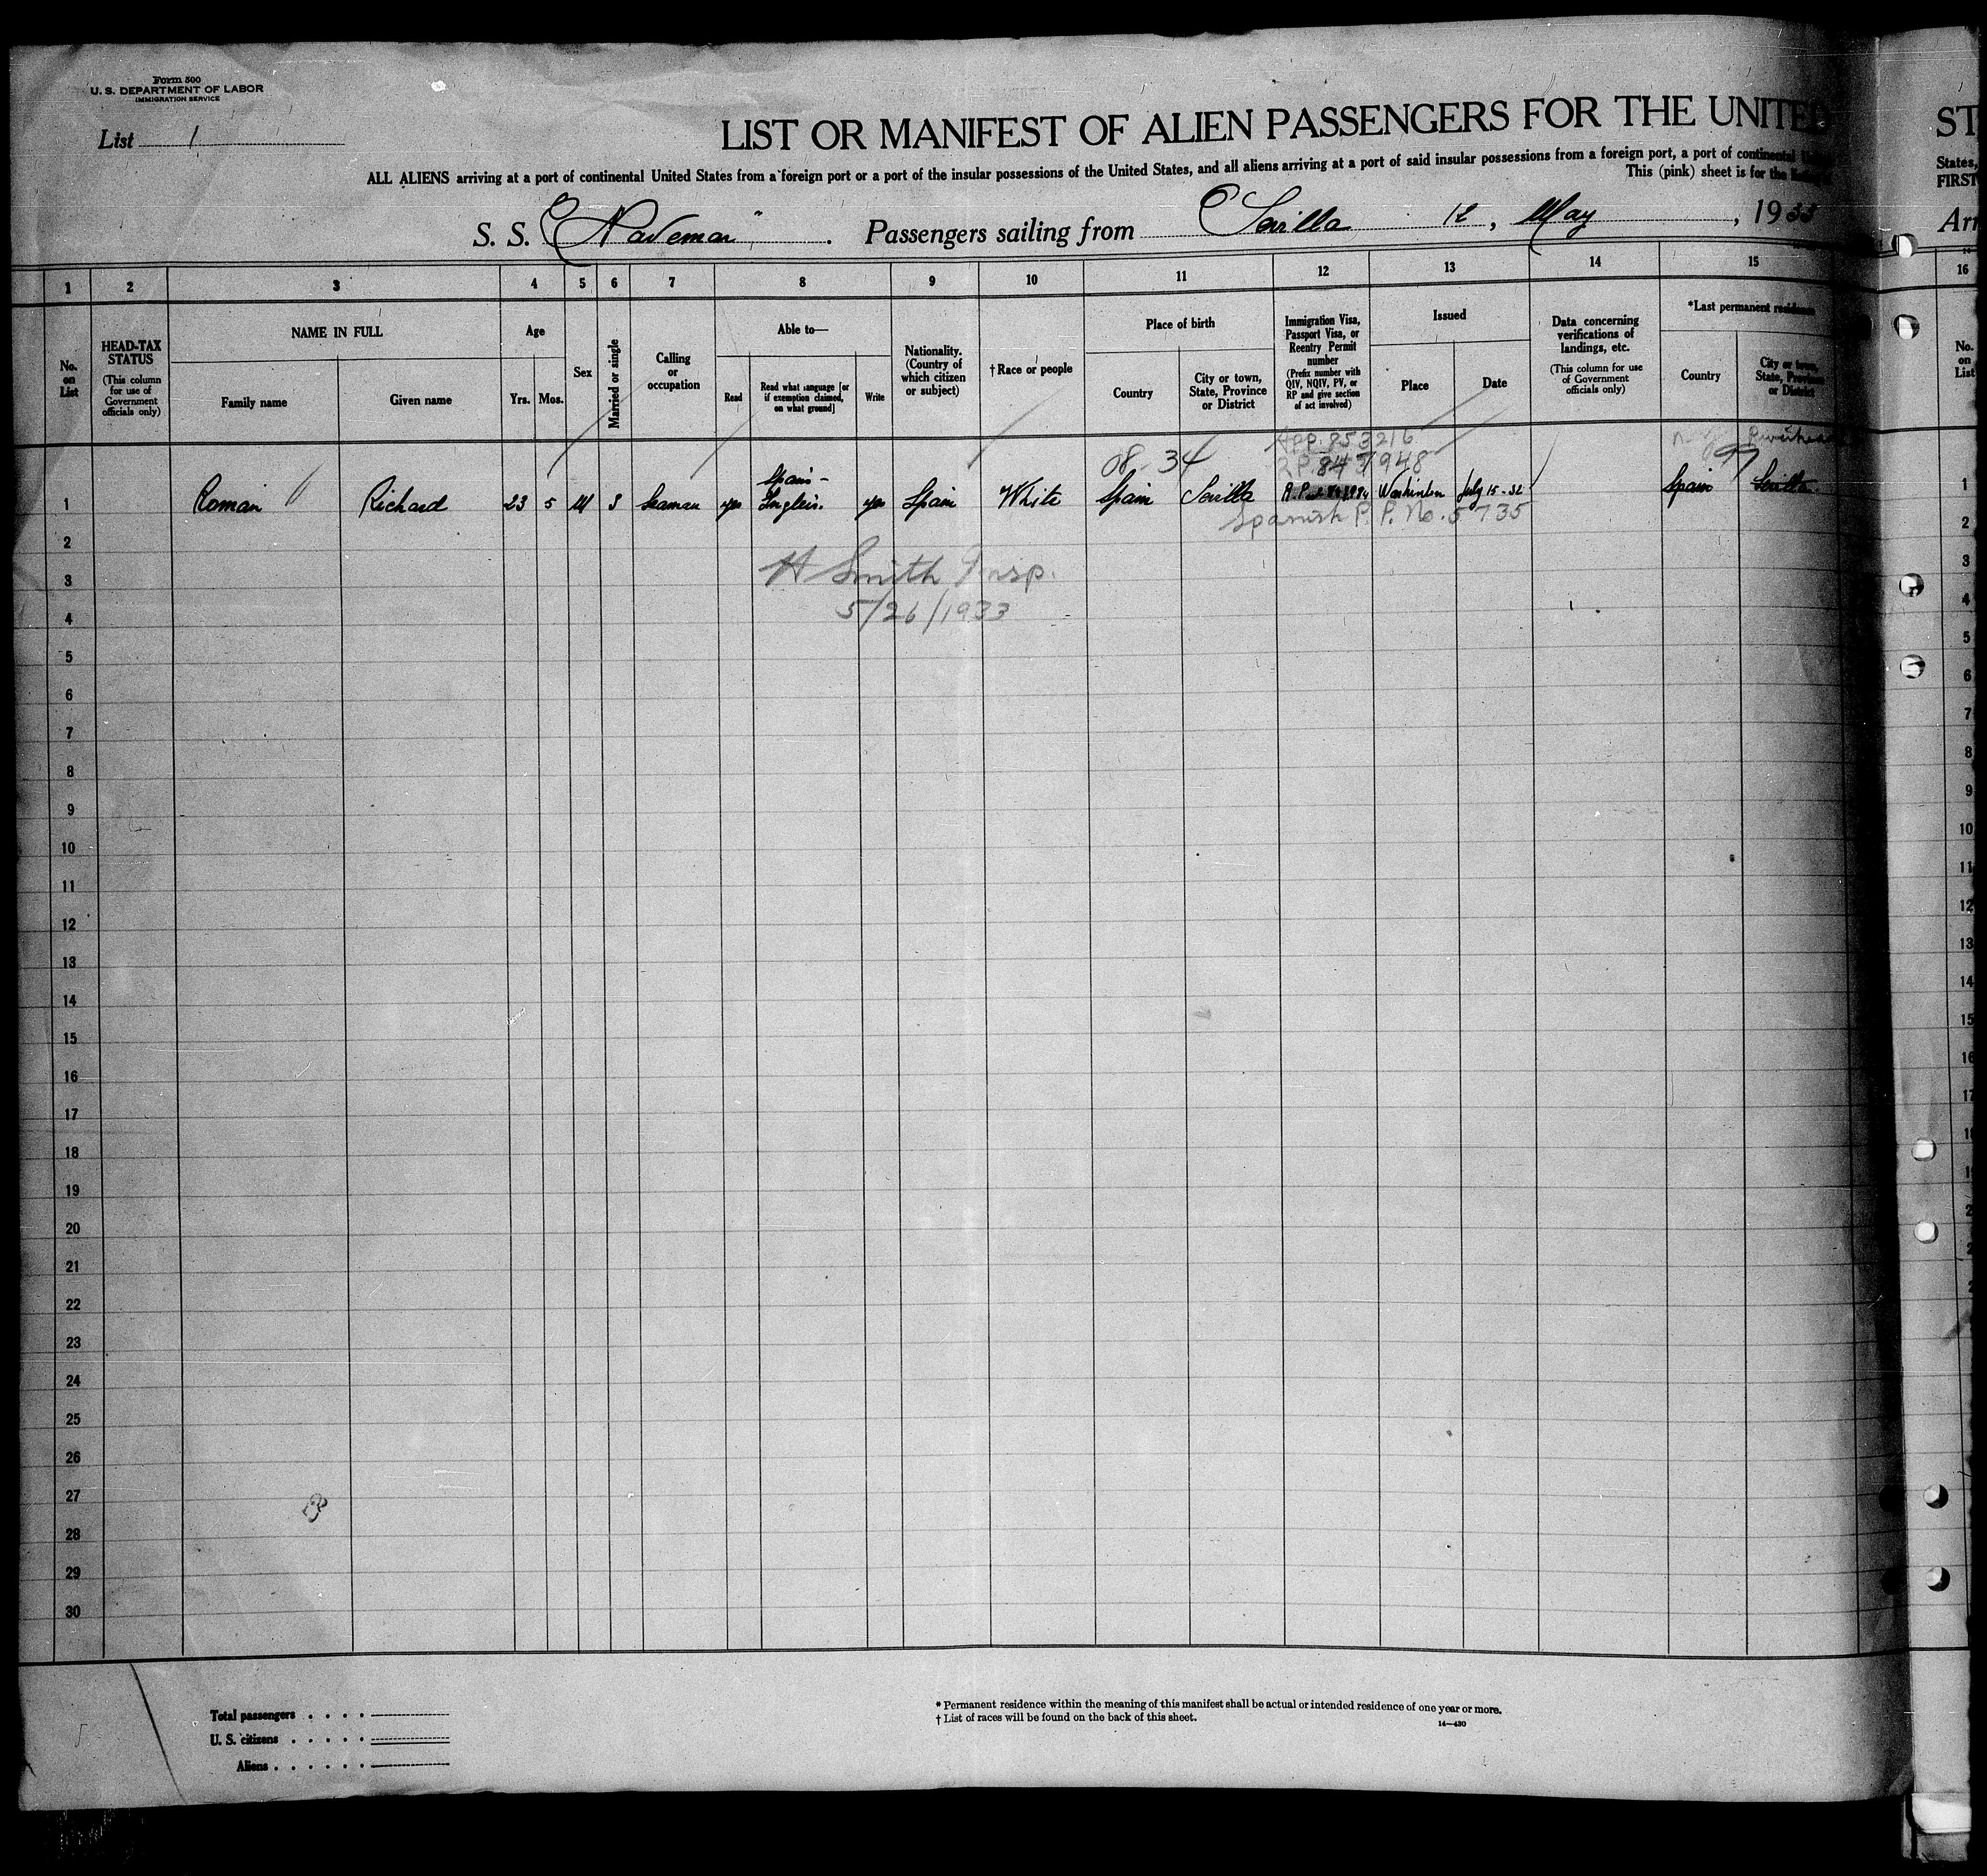 Form 500
U. S. DEPARTMENT OF LABOR
IMMIGRATION SERVICE
List 1
LIST OR MANIFEST OF ALIEN PASSENGERS FOR THE UNITED
ST
ALL ALIENS arriving at a port of continental United States from a foreign port or a port of the insular possessions of the United States, and all aliens arriving at a port of said insular possessions from a foreign port, a port of continental
States,
This (pink) sheet is for the
FIRST
S. S. "Navemar". Passengers sailing from Sevilla 12, May, 1933
Arr
1 2 3 4 5 6 7 8 9 10 11 12 13 14 15 16
No. on List
HEAD-TAX STATUS (This column for use of Government officials only)
NAME IN FULL
Family name
Given name
Age
Yrs.
Mos.
Sex
Married or single
Calling or occupation
Able to—
Read
Read what language [or if exemption claimed, on what ground]
Write
Nationality. (Country of which citizen or subject)
†Race or people
Place of birth
Country
City or town, State, Province or District
Immigration Visa, Passport Visa, or Reentry Permit number (Prefix number with QIV, NQIV, PV, or RP and give section of act involved)
Issued
Place
Date
Data concerning verifications of landings, etc. (This column for use of Government officials only)
*Last permanent residence
Country
City or town, State, Province or District
No. on List
App. 853216
08-34
RP. 847948
1 Roman Richard 23 5 M S Seaman yes Spain- Ingleis. yes Spain White Spain Sevilla Washinton July 15-32 Spain Sevilla 1
Spanish P. P. No. 5735
2 2
H Smith Insp.
3 3
5/26/1933
4 4
5 5
6 6
7 7
8 8
9 9
10 10
11 11
12 12
13 13
14 14
15 15
16 16
17 17
18
19
20
21
22
23
24
25
26
27
28
29
30
Total passengers . . . .
U. S. citizens . . . . .
Aliens . . . . . .
* Permanent residence within the meaning of this manifest shall be actual or intended residence of one year or more.
† List of races will be found on the back of this sheet.
14—430